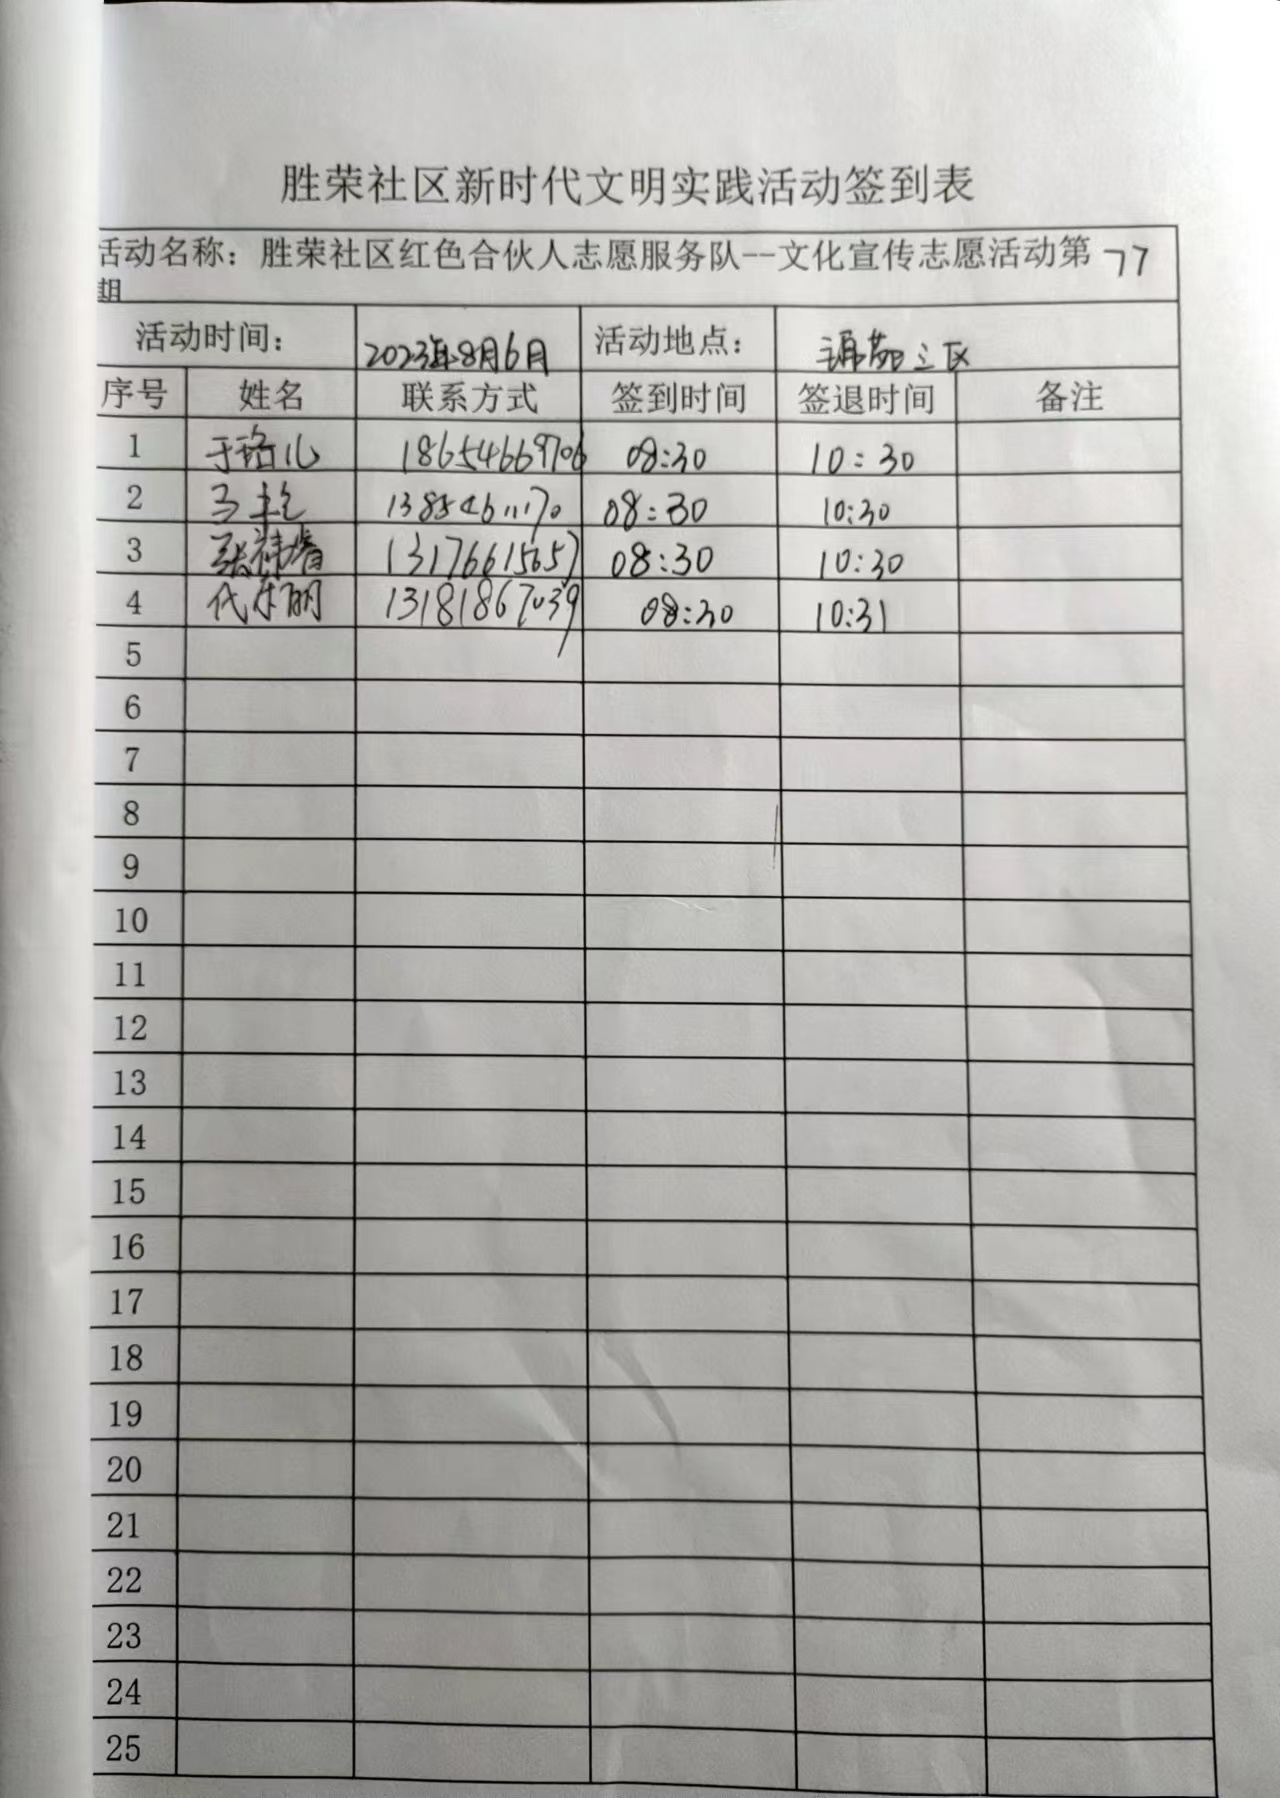 胜荣社区新时代文明实践活动签到表
活动名称：胜荣社区红色合伙人志愿服务队--文化宣传志愿活动第77
期
活动时间： 2023年8月6月 活动地点： 锦苑三区
序号 姓名 联系方式 签到时间 签退时间 备注
1 于珞儿 18654669706 08:30 10:30
2 马 13854611170 08:30 10:30
3 张 睿 13176615657 08:30 10:30
4 代 丽 13181867039 08:30 10:31
5
6
7
8
9
10
11
12
13
14
15
16
17
18
19
20
21
22
23
24
25